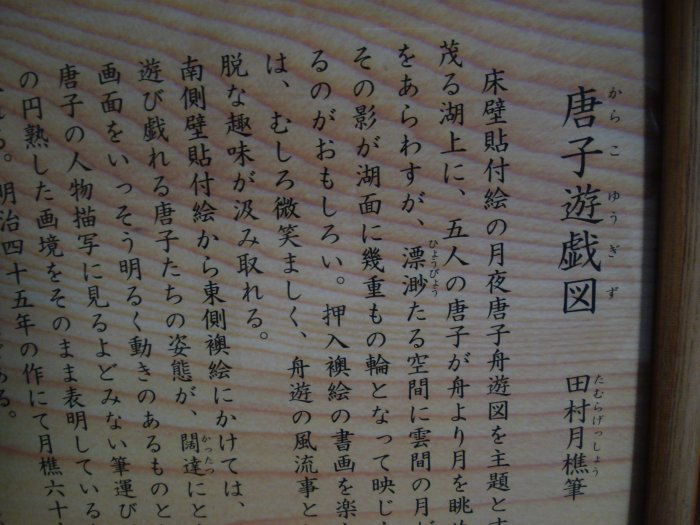 唐子遊戯図
からこゆうぎず
田村月樵筆
たむらげっしょう
床壁貼付絵の月夜唐子舟遊図を主題とす
茂る湖上に、五人の唐子が舟より月を眺め
をあらわすが、漂渺たる空間に雲間の月が
ひょうびょう
その影が湖面に幾重もの輪となって映じ
るのがおもしろい。押入襖絵の書画を楽
は、むしろ微笑ましく、舟遊の風流事と
脱な趣味が汲み取れる。
南側壁貼付絵から東側襖絵にかけては、
遊び戯れる唐子たちの姿態が、闊達にと
かったつ
画面をいっそう明るく動きのあるものと
唐子の人物描写に見るよどみない筆運び
の円熟した画境をそのまま表明している
れる。明治四十五年の作にて月樵六十
ある。